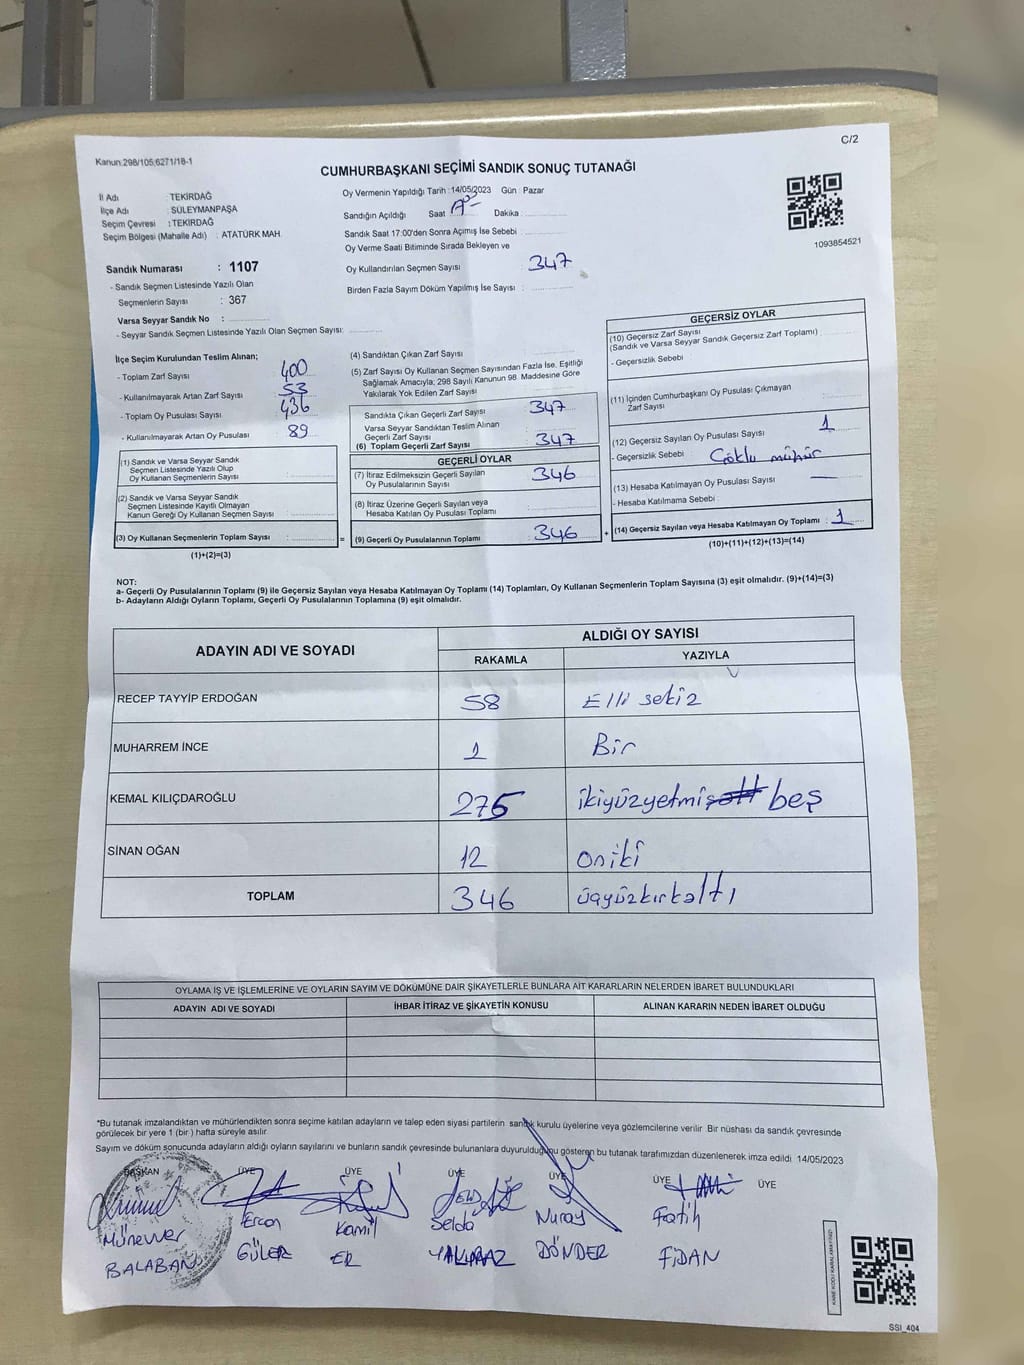 C/2
Kanun:298/105;6271/18-1
CUMHURBAŞKANI SEÇİMİ SANDIK SONUÇ TUTANAĞI
İl Adı : TEKİRDAĞ
İlçe Adı : SÜLEYMANPAŞA
Seçim Çevresi : TEKİRDAĞ
Seçim Bölgesi (Mahalle Adı) : ATATÜRK MAH.
Sandık Numarası : 1107
- Sandık Seçmen Listesinde Yazılı Olan
Seçmenlerin Sayısı : 367
Varsa Seyyar Sandık No :
- Seyyar Sandık Seçmen Listesinde Yazılı Olan Seçmen Sayısı:
Oy Vermenin Yapıldığı Tarih : 14/05/2023 Gün : Pazar
Sandığın Açıldığı Saat Dakika
Sandık Saat 17:00'den Sonra Açımış İse Sebebi :
Oy Verme Saati Bitiminde Sırada Bekleyen ve
Oy Kullandırılan Seçmen Sayısı : 347
Birden Fazla Sayım Döküm Yapılmış İse Sayısı :
1093854521
İlçe Seçim Kurulundan Teslim Alınan;
- Toplam Zarf Sayısı : 400
- Kullanılmayarak Artan Zarf Sayısı : 53
- Toplam Oy Pusulası Sayısı : 436
- Kullanılmayarak Artan Oy Pusulası : 89
(1) Sandık ve Varsa Seyyar Sandık
Seçmen Listesinde Yazılı Olup
Oy Kullanan Seçmenlerin Sayısı :
(2) Sandık ve Varsa Seyyar Sandık
Seçmen Listesinde Kayıtlı Olmayan
Kanun Gereği Oy Kullanan Seçmen Sayısı :
(3) Oy Kullanan Seçmenlerin Toplam Sayısı : =
(1)+(2)=(3)
(4) Sandıktan Çıkan Zarf Sayısı
(5) Zarf Sayısı Oy Kullanan Seçmen Sayısından Fazla İse, Eşitliği
Sağlamak Amacıyla; 298 Sayılı Kanunun 98. Maddesine Göre
Yakılarak Yok Edilen Zarf Sayısı
Sandıkta Çıkan Geçerli Zarf Sayısı : 347
Varsa Seyyar Sandıktan Teslim Alınan
Geçerli Zarf Sayısı
(6) Toplam Geçerli Zarf Sayısı : 347
GEÇERLİ OYLAR
(7) İtiraz Edilmeksizin Geçerli Sayılan
Oy Pusulalarının Sayısı : 346
(8) İtiraz Üzerine Geçerli Sayılan veya
Hesaba Katılan Oy Pusulası Toplamı
(9) Geçerli Oy Pusulalarının Toplamı : 346 +
GEÇERSİZ OYLAR
(10) Geçersiz Zarf Sayısı
(Sandık ve Varsa Seyyar Sandık Geçersiz Zarf Toplamı)
- Geçersizlik Sebebi
(11) İçinden Cumhurbaşkanı Oy Pusulası Çıkmayan
Zarf Sayısı
(12) Geçersiz Sayılan Oy Pusulası Sayısı : 1
- Geçersizlik Sebebi : Çoklu mühür
(13) Hesaba Katılmayan Oy Pusulası Sayısı : —
- Hesaba Katılmama Sebebi :
(14) Geçersiz Sayılan veya Hesaba Katılmayan Oy Toplamı : 1
(10)+(11)+(12)+(13)=(14)
NOT:
a- Geçerli Oy Pusulalarının Toplamı (9) ile Geçersiz Sayılan veya Hesaba Katılmayan Oy Toplamı (14) Toplamları, Oy Kullanan Seçmenlerin Toplam Sayısına (3) eşit olmalıdır. (9)+(14)=(3)
b- Adayların Aldığı Oyların Toplamı, Geçerli Oy Pusulalarının Toplamına (9) eşit olmalıdır.
ADAYIN ADI VE SOYADI ALDIĞI OY SAYISI
RAKAMLA YAZIYLA
RECEP TAYYİP ERDOĞAN 58 Elli sekiz
MUHARREM İNCE 1 Bir
KEMAL KILIÇDAROĞLU 275 ikiyüzyetmiş beş
SİNAN OĞAN 12 oniki
TOPLAM 346 üçyüzkırkaltı
OYLAMA İŞ VE İŞLEMLERİNE VE OYLARIN SAYIM VE DÖKÜMÜNE DAİR ŞİKAYETLERLE BUNLARA AİT KARARLARIN NELERDEN İBARET BULUNDUKLARI
ADAYIN ADI VE SOYADI İHBAR İTİRAZ VE ŞİKAYETİN KONUSU ALINAN KARARIN NEDEN İBARET OLDUĞU
*Bu tutanak imzalandıktan ve mühürlendikten sonra seçime katılan adayların ve talep eden siyasi partilerin sandık kurulu üyelerine veya gözlemcilerine verilir. Bir nüshası da sandık çevresinde
görülecek bir yere 1 (bir) hafta süreyle asılır.
Sayım ve döküm sonucunda adayların aldığı oyların sayılarını ve bunların sandık çevresinde bulunanlara duyurulduğunu gösteren bu tutanak tarafımızdan düzenlenerek imza edildi. 14/05/2023
BAŞKAN ÜYE ÜYE ÜYE ÜYE ÜYE ÜYE
Münevver Ercan Kamil Selda Nuray Fatih
BALABAN GÜLER ER DÖNDER FİDAN
SSI_404